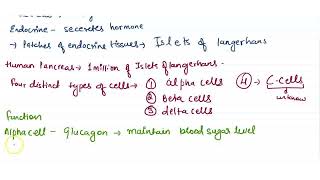 Endocrine - secretes hormone
→ Patches of endocrine tissues → Islets of langerhans
Human Pancreas → 1 million of Islets of langerhans.
Four distinct types of cells → ① alpha cells ④ → C-cells
② Beta cells unknown
③ delta cells
Function
Alpha cell - glucagon → maintain blood sugar level